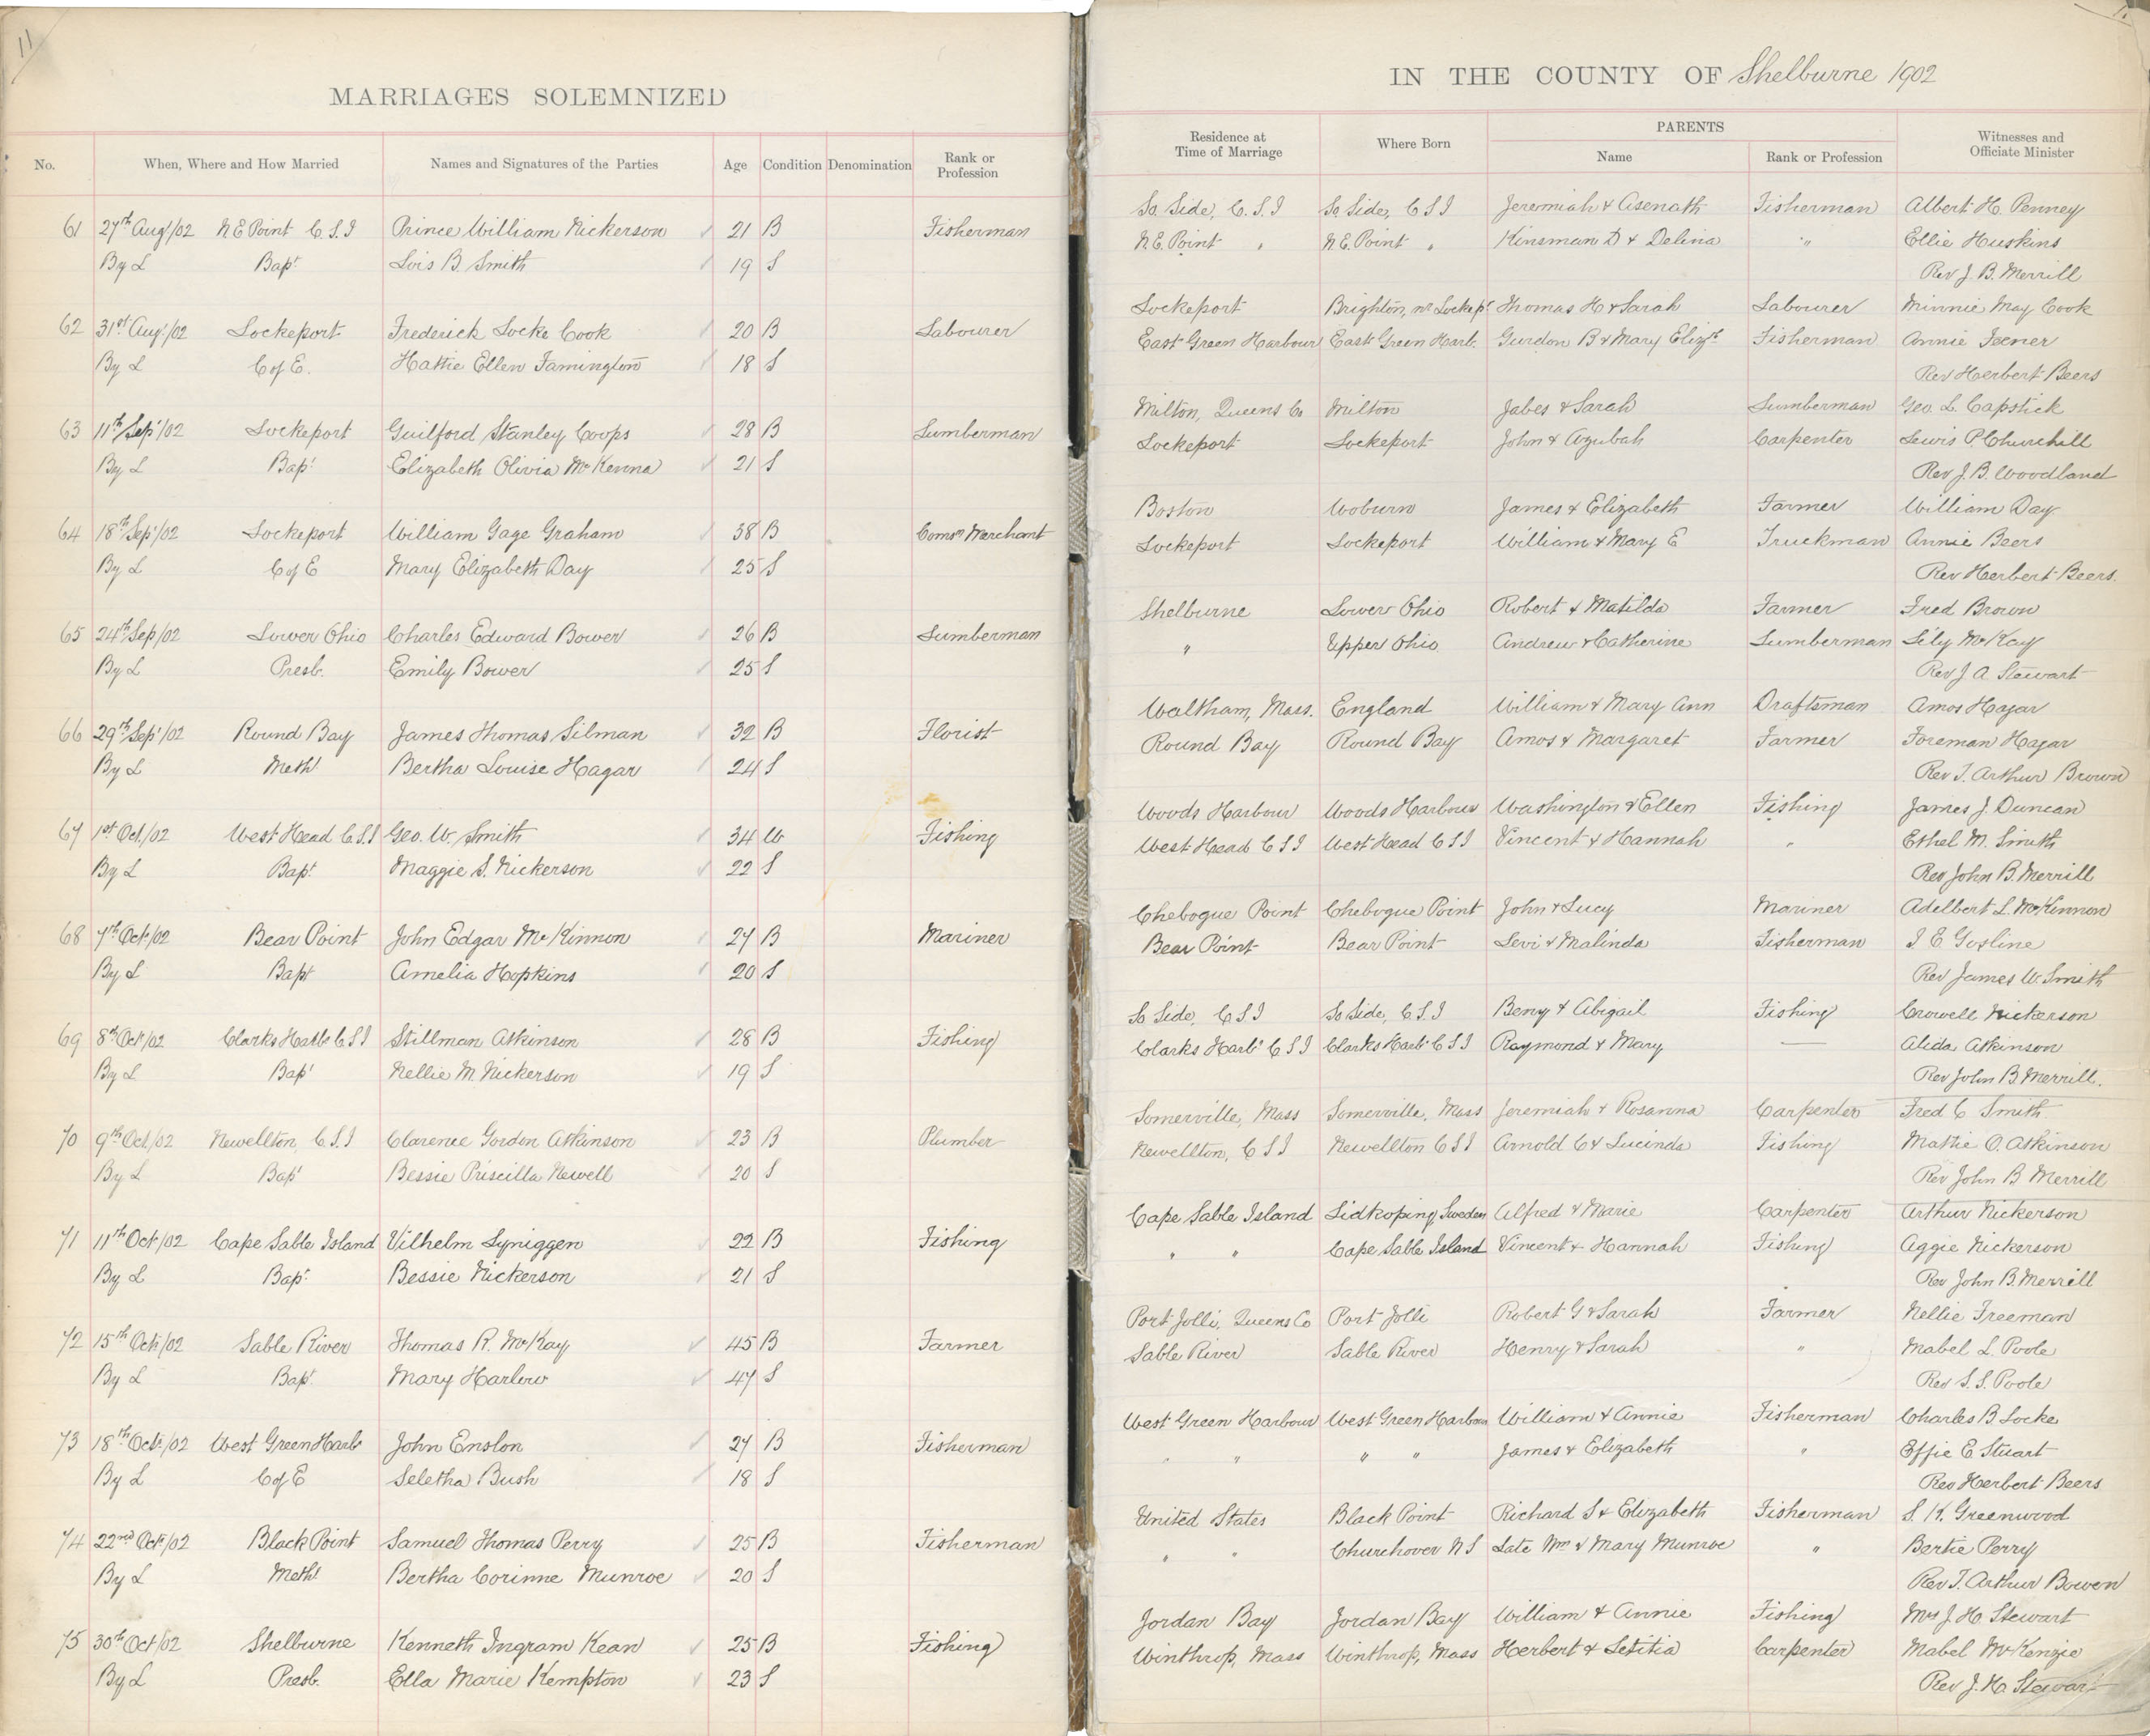 11
MARRIAGES SOLEMNIZED
No. When, Where and How Married Names and Signatures of the Parties Age Condition Denomination Rank or Profession
61 27th Aug/02 N E Point C.S.I Prince William Nickerson 21 B Fisherman
By L Bapt Lois B. Smith 19 S
62 31st Aug/02 Lockeport Frederick Locke Cook 20 B Labourer
By L C of E. Hattie Ellen Famington 18 S
63 11th Sep/02 Lockeport Guilford Stanley Coops 28 B Lumberman
By L Bapt Elizabeth Olivia McKenna 21 S
64 18th Sep/02 Lockeport William Gage Graham 38 B Comsn Merchant
By L C of E Mary Elizabeth Day 25 S
65 24th Sep/02 Lower Ohio Charles Edward Bower 26 B Lumberman
By L Presb. Emily Bower 25 S
66 29th Sep/02 Round Bay James Thomas Silman 32 B Florist
By L Meth Bertha Louise Hagar 24 S
67 1st Oct/02 West Head C.S.I Geo. W. Smith 34 W Fishing
By L Bapt Maggie S. Nickerson 22 S
68 7th Oct/02 Bear Point John Edgar McKinnon 27 B Mariner
By L Bapt Amelia Hopkins 20 S
69 8th Oct/02 Clarks Harbr C S I Stillman Atkinson 28 B Fishing
By L Bapt Nellie M. Nickerson 19 S
70 9th Oct/02 Newellton, C.S.I Clarence Gordon Atkinson 23 B Plumber
By L Bapt Bessie Priscilla Newell 20 S
71 11th Oct/02 Cape Sable Island Vilhelm Syniggen 22 B Fishing
By L Bapt Bessie Nickerson 21 S
72 15th Oct/02 Sable River Thomas R. McKay 45 B Farmer
By L Bapt Mary Harlow 47 S
73 18th Oct/02 West Green Harbr John Enslon 27 B Fisherman
By L C of E Seletha Bush 18 S
74 22nd Oct/02 Black Point Samuel Thomas Perry 25 B Fisherman
By L Meth Bertha Corinne Munroe 20 S
75 30th Oct/02 Shelburne Kenneth Ingram Kean 25 B Fishing
By L Presb. Ella Marie Kempton 23 S
IN THE COUNTY OF Shelburne 1902
Residence at Time of Marriage Where Born PARENTS Name Rank or Profession Witnesses and Officiate Minister
So. Side, C.S.I So Side, C S I Jeremiah & Asenath Fisherman Albert H. Penney
N.E. Point " N.E. Point " Kinsman D & Delina " Ellie Huskins
Rev J. B. Merrill
Lockeport Brighton, nr Lockept Thomas H & Sarah Labourer Minnie May Cook
East Green Harbour East Green Harb. Gurdon B & Mary Elizth Fisherman Annie Feener
Rev Herbert Beers
Milton, Queens Co Milton Jabes & Sarah Lumberman Geo. L. Capstick
Lockeport Lockeport John & Azubah Carpenter Lewis P Churchill
Rev J. B. Woodland
Boston Woburn James & Elizabeth Farmer William Day
Lockeport Lockeport William & Mary E Truckman Annie Beers
Rev Herbert Beers.
Shelburne Lower Ohio Robert & Matilda Farmer Fred Brown
" Upper Ohio Andrew & Catherine Lumberman Lily McKay
Rev J A Stewart
Waltham, Mass. England William & Mary Ann Draftsman Amos Hagar
Round Bay Round Bay Amos & Margaret Farmer Foreman Hagar
Rev T. Arthur Brown
Woods Harbour Woods Harbour Washington & Ellen Fishing James J. Duncan
West Head C S I West Head C S I Vincent & Hannah " Ethel M. Smith
Rev John B. Merrill
Chebogue Point Chebogue Point John & Lucy Mariner Adelbert L. McKinnon
Bear Point Bear Point Levi & Malinda Fisherman I E Gosline
Rev James W. Smith
So Side, C S I So Side, C.S.I Benj & Abigail Fishing Crowell Nickerson
Clarks Harbr C S I Clarks Harbr C S I Raymond & Mary — Alida Atkinson
Rev John B Merrill.
Somerville, Mass Somerville, Mass Jeremiah & Rosanna Carpenter Fred C Smith
Newellton, C S I Newellton C S I Arnold C & Lucinda Fishing Mattie O. Atkinson
Rev John B Merrill
Cape Sable Island Lidkoping, Sweden Alfred & Marie Carpenter Arthur Nickerson
" " Cape Sable Island Vincent & Hannah Fishing Aggie Nickerson
Rev John B. Merrill
Port Jolli, Queens Co Port Jolli Robert G & Sarah Farmer Nellie Freeman
Sable River Sable River Henry & Sarah " Mabel L. Poole
Rev S. S. Poole
West Green Harbour West Green Harbour William & Annie Fisherman Charles B Locke
" " " " James & Elizabeth " Effie E Stuart
Rev Herbert Beers
United States Black Point Richard S & Elizabeth Fisherman S. K. Greenwood
" " Churchover N S Late Wm & Mary Munroe " Bertie Perry
Rev T. Arthur Bowen
Jordan Bay Jordan Bay William & Annie Fishing Mrs J. H. Stewart
Winthrop, Mass Winthrop, Mass Herbert & Letitia Carpenter Mabel McKenzie
Rev J. H. Stewart